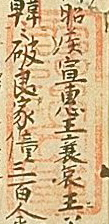 昭侯宣惠王襄哀王
韓破良家僮三百人